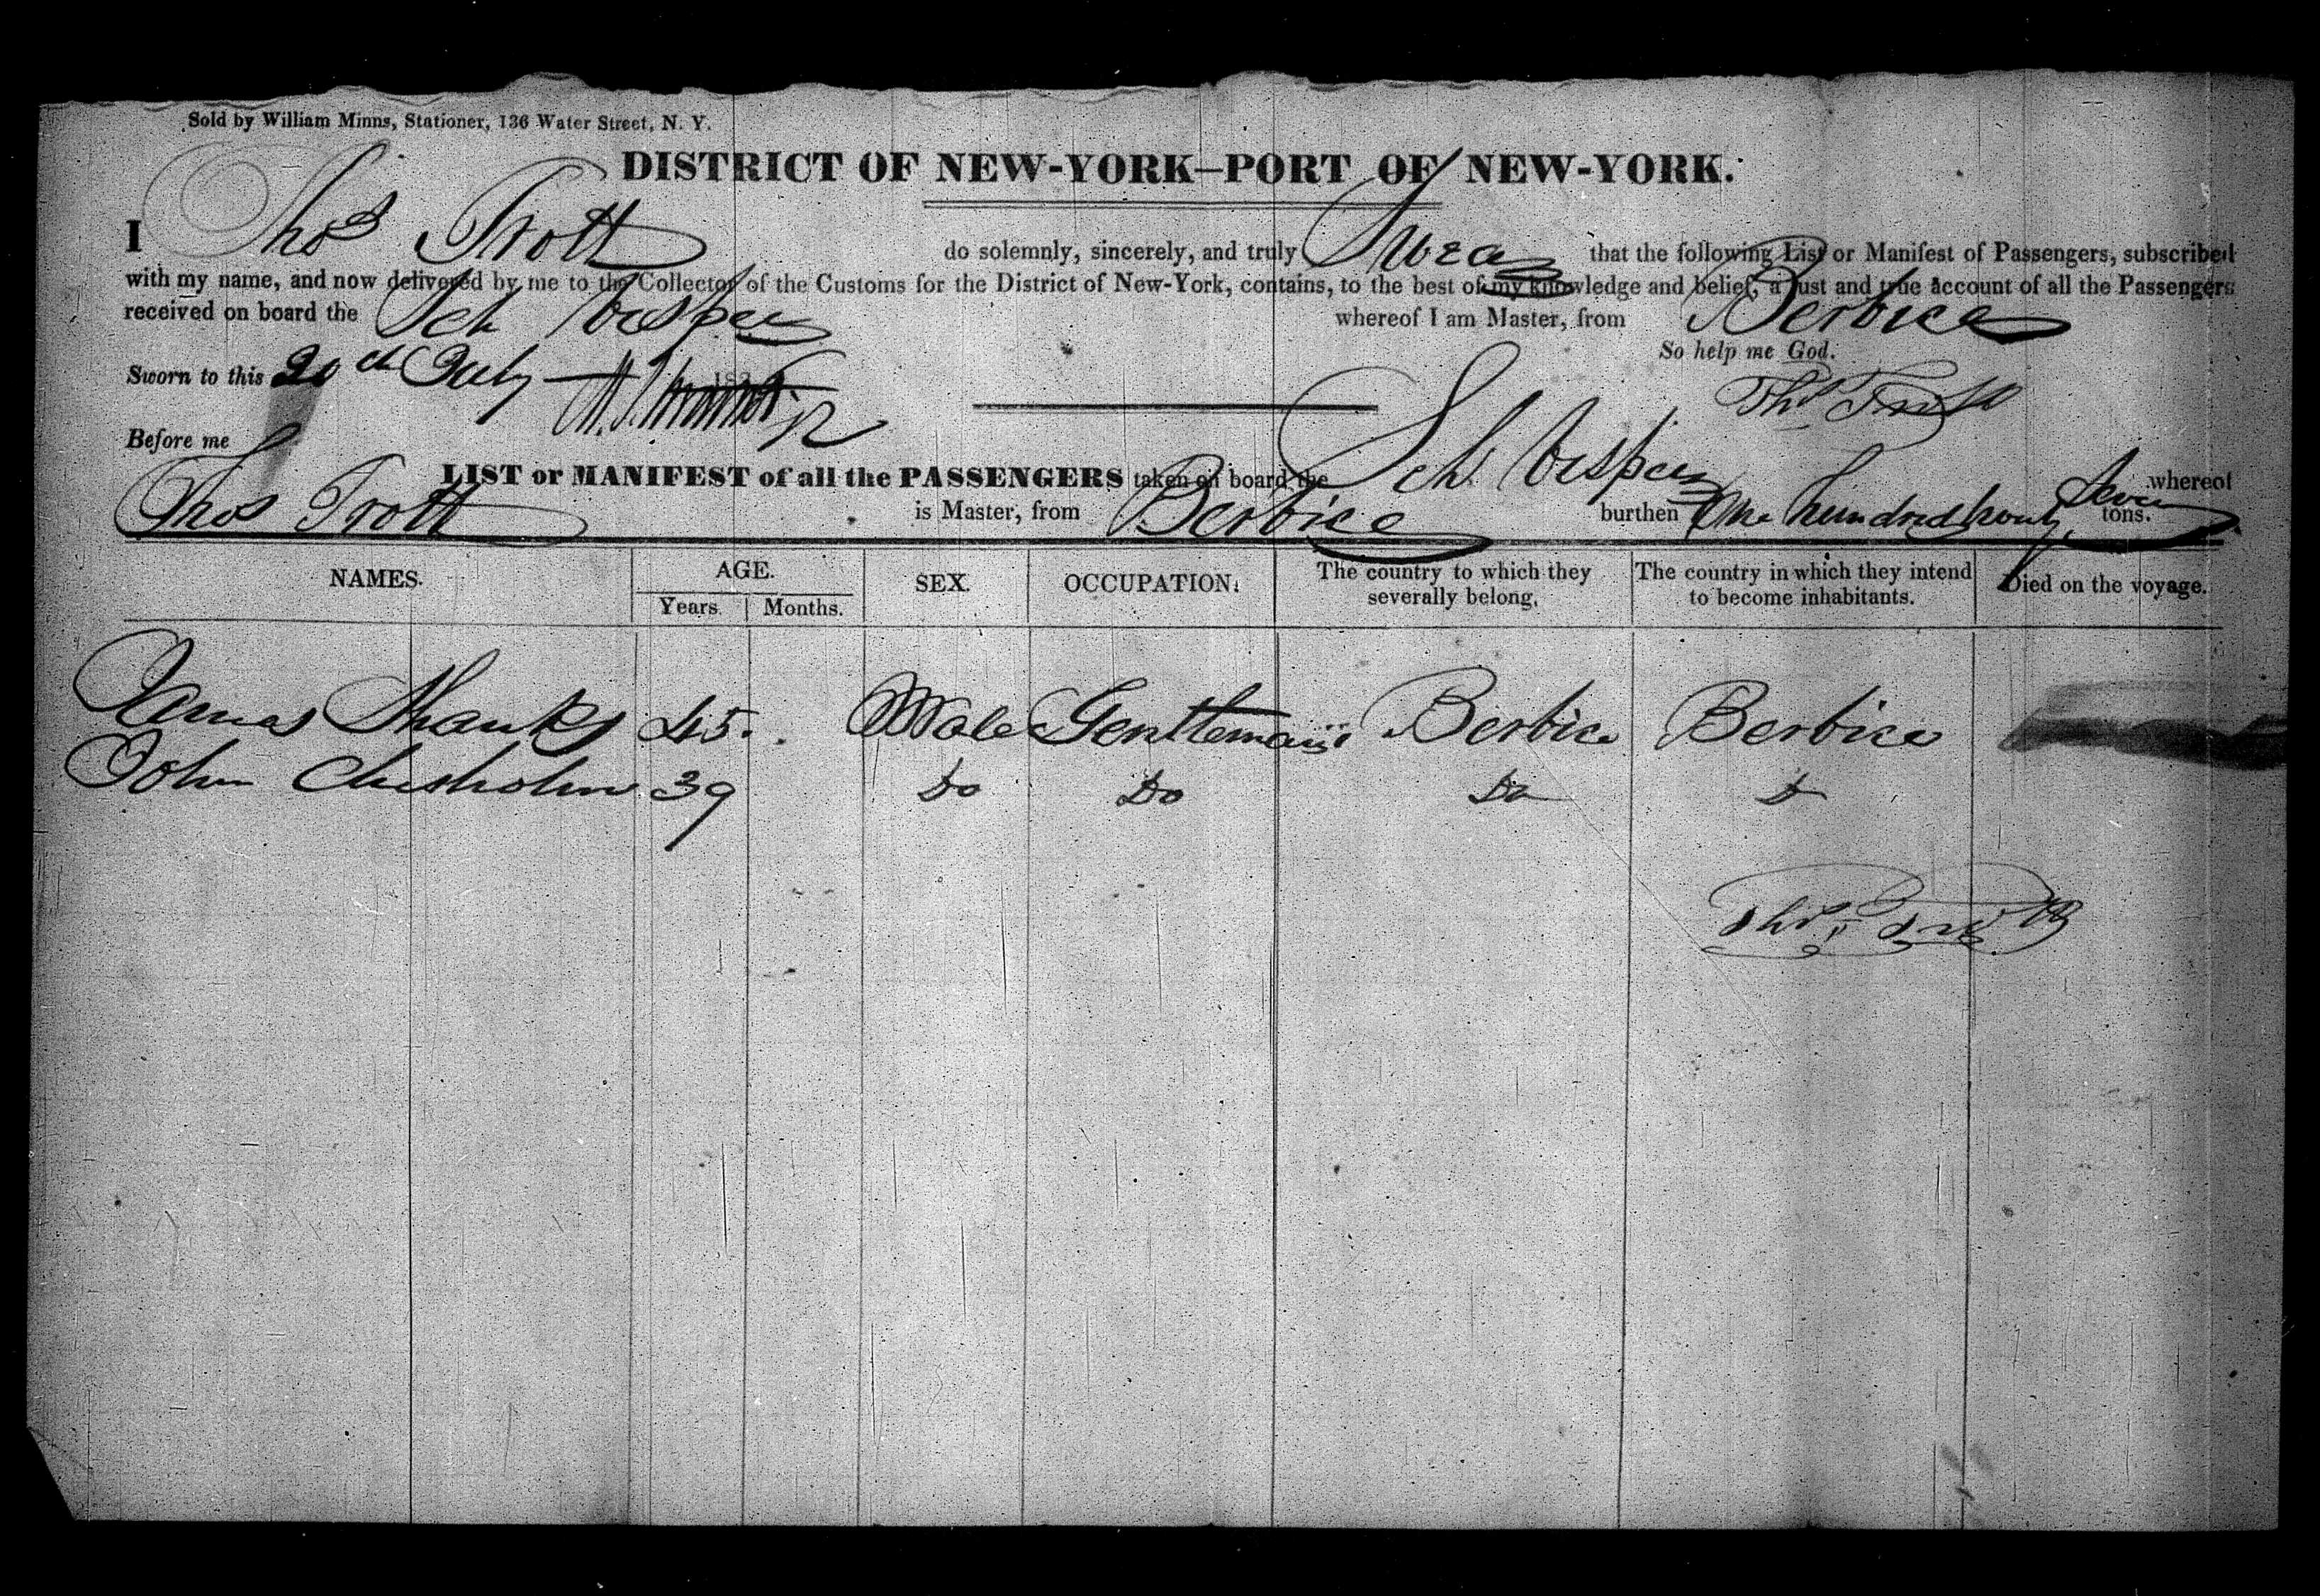 Sold by William Minns, Stationer, 136 Water Street, N. Y.
DISTRICT OF NEW-YORK—PORT OF NEW-YORK.
I Thos Trott do solemnly, sincerely, and truly Swear that the following List or Manifest of Passengers, subscribed
with my name, and now delivered by me to the Collector of the Customs for the District of New-York, contains, to the best of my knowledge and belief, a just and true account of all the Passengers
received on board the Sch Vesper whereof I am Master, from Berbice
So help me God.
Sworn to this 20th July 183
Thos Trott
Before me
LIST or MANIFEST of all the PASSENGERS taken on board the Sch Vesper whereof
Thos Trott is Master, from Berbice burthen One hundred Seven tons.
NAMES. AGE. SEX. OCCUPATION. The country to which they severally belong. The country in which they intend to become inhabitants. Died on the voyage.
Years. Months.
James Shanks 45. Male Gentleman Berbice Berbice
John Chisholm 39 Do Do Do D
Thos Trott